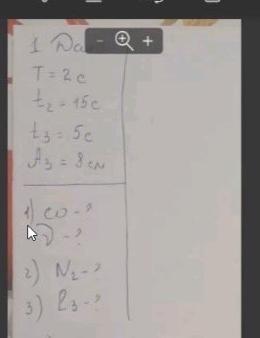 1 Да
T = 2с
t₂ = 15с
t₃ = 5с
A₃ = 8см
1) ω - ?
ν - ?
2) N₂ - ?
3) l₃ - ?